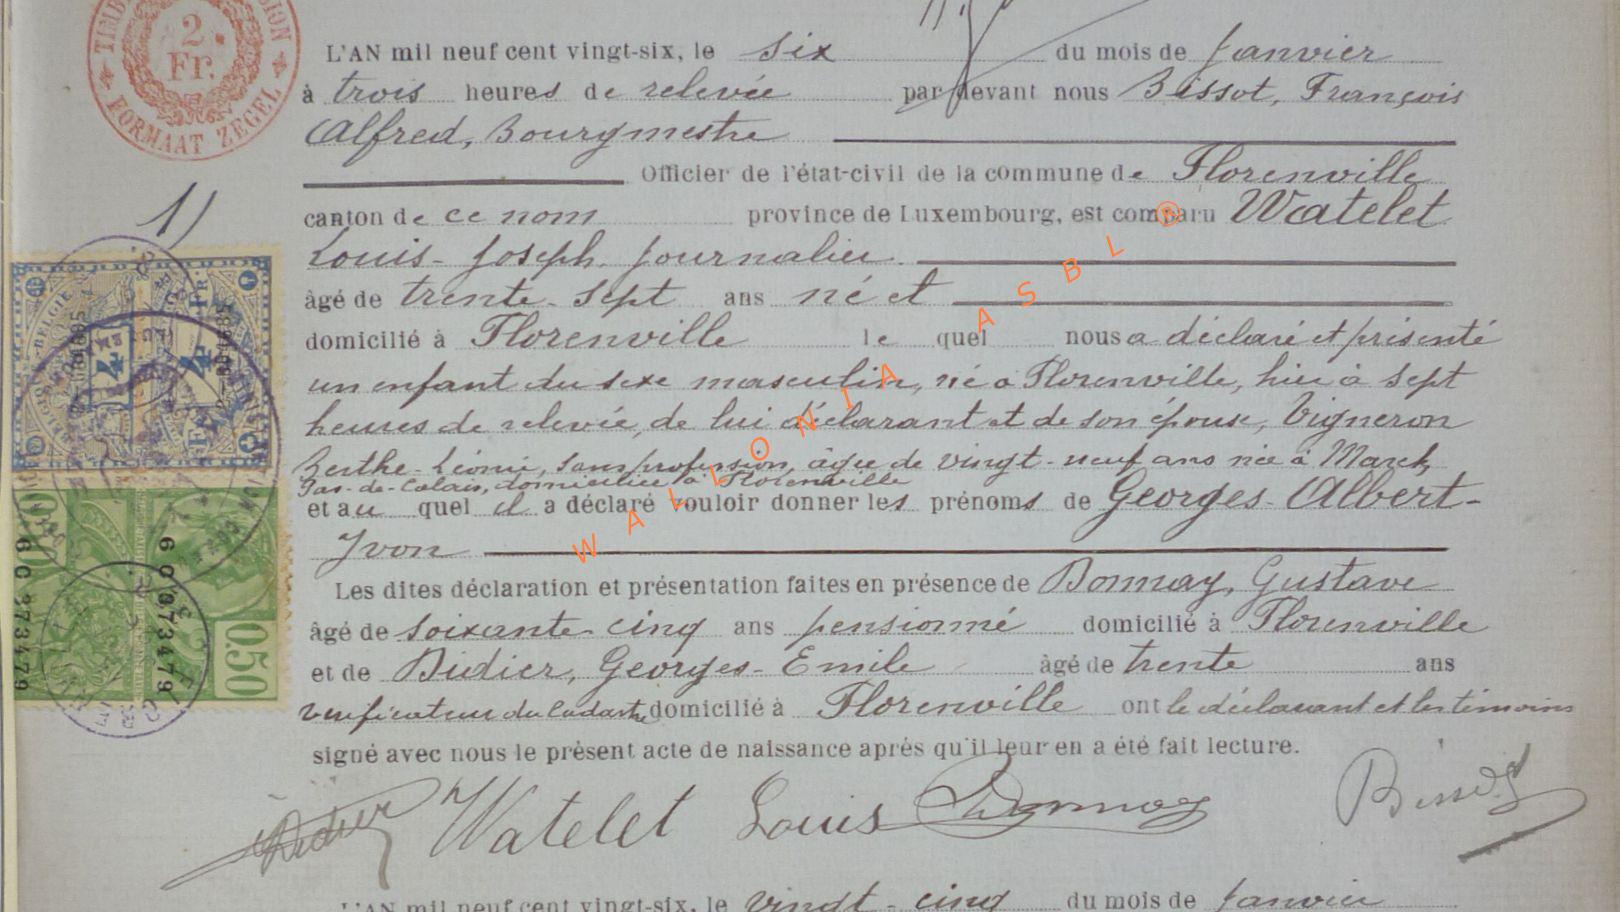 L'AN mil neuf cent vingt-six, le six du mois de Janvier
à trois heures de relevée par devant nous Bissot, François
Alfred, Bourgmestre
Officier de l'état-civil de la commune de Florenville
1)
canton de ce nom province de Luxembourg, est comparu Watelet
Louis-Joseph, journalier
âgé de trente-sept ans né et
domicilié à Florenville le quel nous a déclaré et présenté
un enfant du sexe masculin, né à Florenville, hier à sept
heures de relevée, de lui déclarant et de son épouse, Vigneron
Berthe-Léonie, sans profession, âgée de vingt-neuf ans née à Marck,
Pas-de-Calais, domiciliée à Florenville
et au quel il a déclaré vouloir donner les prénoms de Georges-Albert-
Yvon
Les dites déclaration et présentation faites en présence de Bonmay, Gustave
âgé de soixante-cinq ans pensionné domicilié à Florenville
et de Didier, Georges-Emile âgé de trente ans
vérificateur du Cadastre domicilié à Florenville ont le déclarant et les témoins
signé avec nous le présent acte de naissance après qu'il leur en a été fait lecture.
Didier Watelet Louis
L'AN mil neuf cent vingt-six, le vingt-cinq du mois de Janvier
2
Fr.
FORMAAT ZEGEL
BELGIQUE-BELGIË
4
Fr
0.50
60 873479
60 873479
WALLONIA ASBL ®